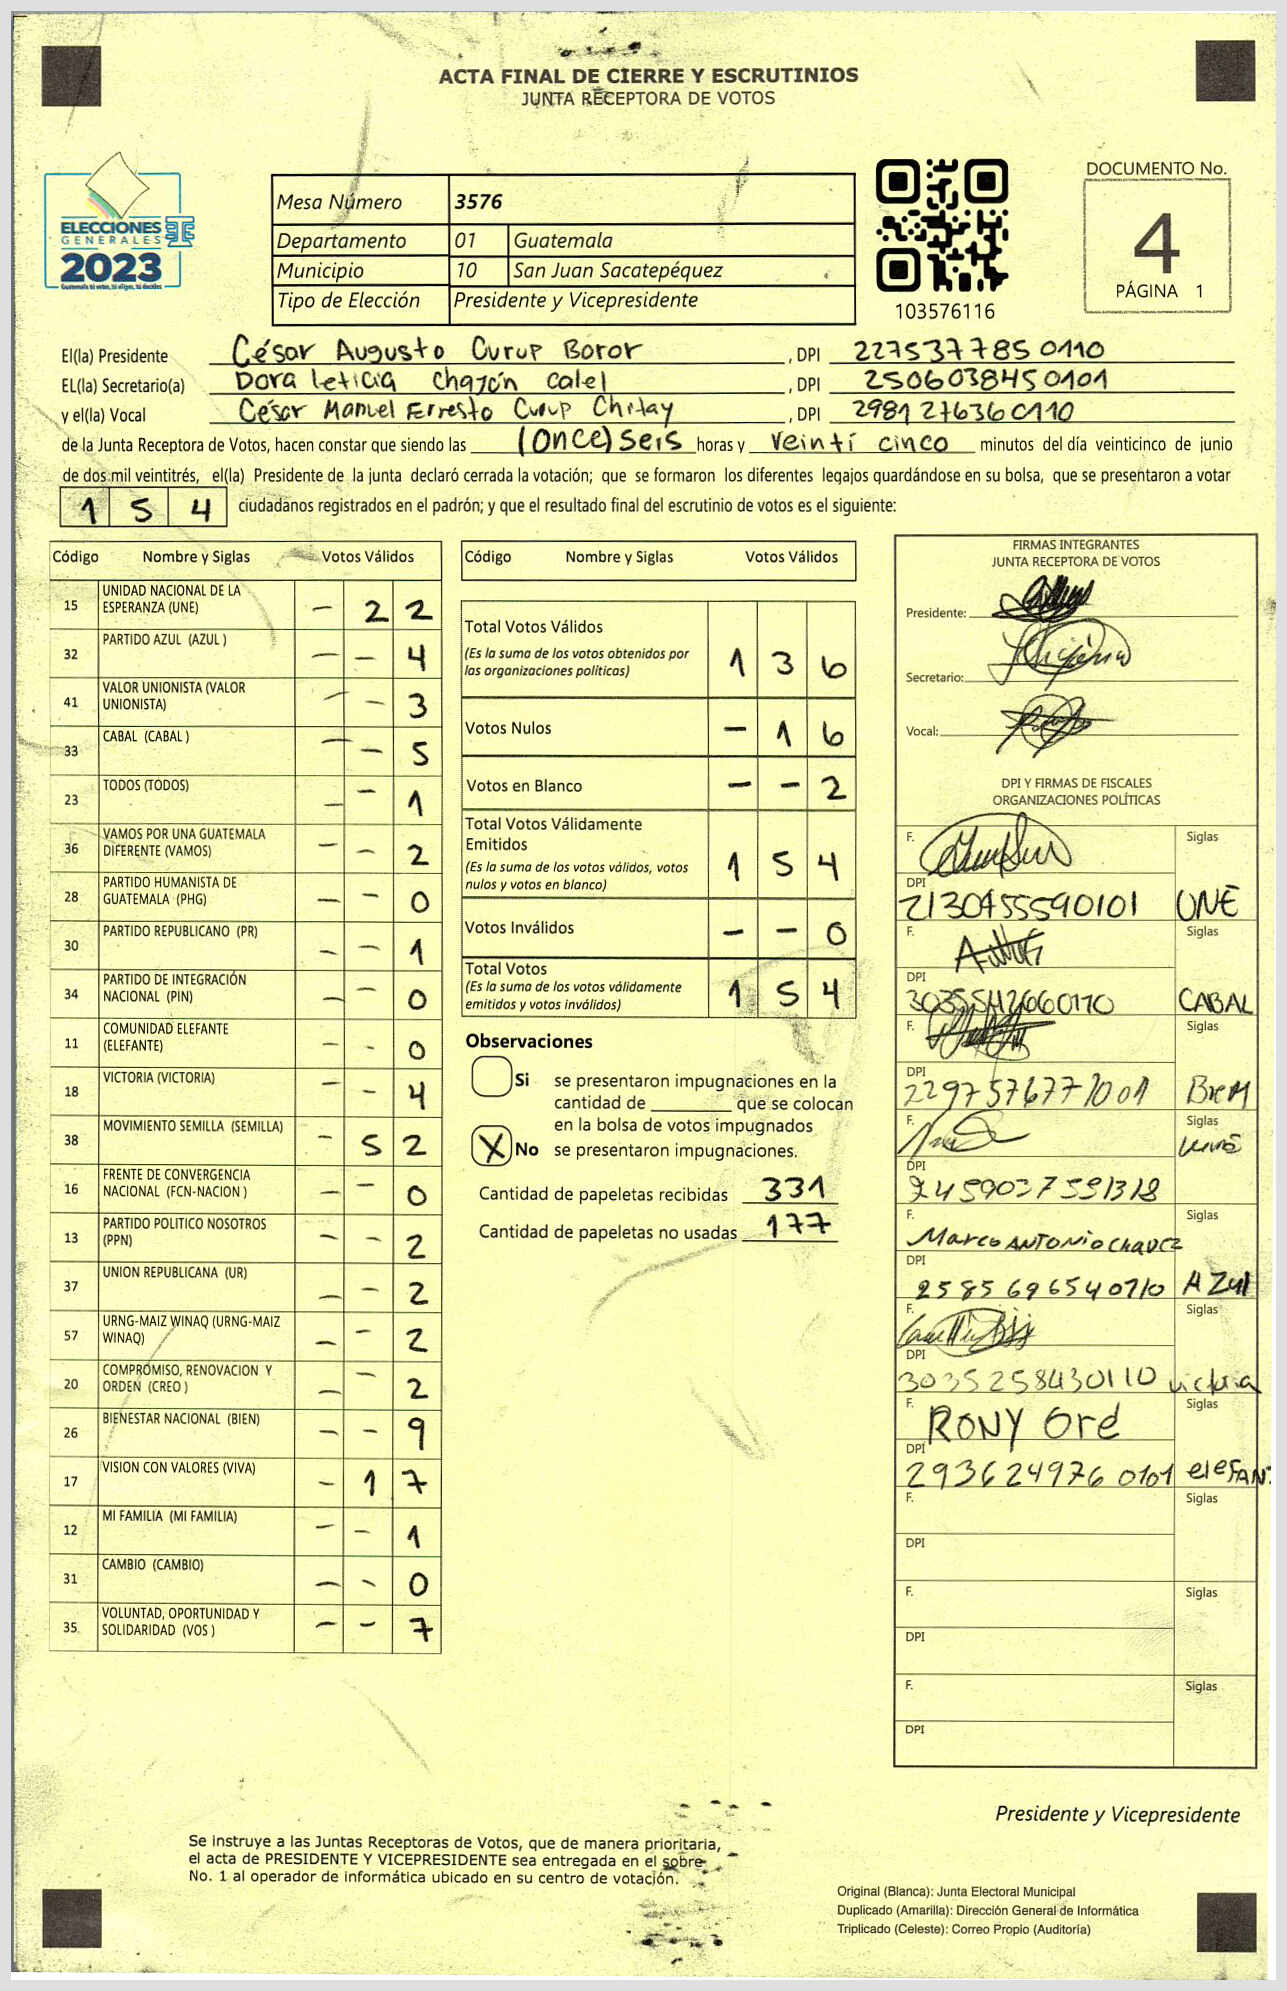 ACTA FINAL DE CIERRE Y ESCRUTINIOS
JUNTA RECEPTORA DE VOTOS
ELECCIONES
GENERALES
2023
Guatemala tú votas, tú eliges, tú decides
Mesa Número 3576
Departamento 01 Guatemala
Municipio 10 San Juan Sacatepéquez
Tipo de Elección Presidente y Vicepresidente
103576116
DOCUMENTO No.
4
PÁGINA 1
El(la) Presidente César Augusto Curup Boror , DPI 227537785 0110
EL(la) Secretario(a) Dora leticia chazón catel , DPI 2506038450101
y el(la) Vocal César Manuel Erresto Curup Chitay , DPI 2981 27636 0110
de la Junta Receptora de Votos, hacen constar que siendo las (once) seis horas y veinti cinco minutos del día veinticinco de junio
de dos mil veintitrés, el(la) Presidente de la junta declaró cerrada la votación; que se formaron los diferentes legajos guardándose en su bolsa, que se presentaron a votar
1 5 4 ciudadanos registrados en el padrón; y que el resultado final del escrutinio de votos es el siguiente:
Código Nombre y Siglas Votos Válidos
15 UNIDAD NACIONAL DE LA ESPERANZA (UNE) - 2 2
32 PARTIDO AZUL (AZUL ) - - 4
41 VALOR UNIONISTA (VALOR UNIONISTA) - - 3
33 CABAL (CABAL ) - - 5
23 TODOS (TODOS) - - 1
36 VAMOS POR UNA GUATEMALA DIFERENTE (VAMOS) - - 2
28 PARTIDO HUMANISTA DE GUATEMALA (PHG) - - 0
30 PARTIDO REPUBLICANO (PR) - - 1
34 PARTIDO DE INTEGRACIÓN NACIONAL (PIN) - - 0
11 COMUNIDAD ELEFANTE (ELEFANTE) - - 0
18 VICTORIA (VICTORIA) - - 4
38 MOVIMIENTO SEMILLA (SEMILLA) - 5 2
16 FRENTE DE CONVERGENCIA NACIONAL (FCN-NACION ) - - 0
13 PARTIDO POLITICO NOSOTROS (PPN) - - 2
37 UNION REPUBLICANA (UR) - - 2
57 URNG-MAIZ WINAQ (URNG-MAIZ WINAQ) - - 2
20 COMPROMISO, RENOVACION Y ORDEN (CREO ) - - 2
26 BIENESTAR NACIONAL (BIEN) - - 9
17 VISION CON VALORES (VIVA) - 1 7
12 MI FAMILIA (MI FAMILIA) - - 1
31 CAMBIO (CAMBIO) - - 0
35 VOLUNTAD, OPORTUNIDAD Y SOLIDARIDAD (VOS ) - - 7
Código Nombre y Siglas Votos Válidos
Total Votos Válidos 1 3 6
(Es la suma de los votos obtenidos por
las organizaciones políticas)
Votos Nulos - 1 6
Votos en Blanco - - 2
Total Votos Válidamente
Emitidos 1 5 4
(Es la suma de los votos válidos, votos
nulos y votos en blanco)
Votos Inválidos - - 0
Total Votos 1 5 4
(Es la suma de los votos válidamente
emitidos y votos inválidos)
Observaciones
Si se presentaron impugnaciones en la
cantidad de ________ que se colocan
en la bolsa de votos impugnados
X No se presentaron impugnaciones.
Cantidad de papeletas recibidas 331
Cantidad de papeletas no usadas 177
FIRMAS INTEGRANTES
JUNTA RECEPTORA DE VOTOS
Presidente:
Secretario:
Vocal:
DPI Y FIRMAS DE FISCALES
ORGANIZACIONES POLÍTICAS
F. Siglas
DPI
2130455590101 UNE
F. Siglas
DPI
CABAL
F. Siglas
DPI
F. Siglas
DPI
F. Marco ANTONIO CHAVEZ Siglas
DPI
2585 69654 0710 AZUL
F. Siglas
DPI
3035258430110 victoria
F. RONY Ord Siglas
DPI
293624976 0101 elefan
F. Siglas
DPI
F. Siglas
DPI
F. Siglas
DPI
Presidente y Vicepresidente
Se instruye a las Juntas Receptoras de Votos, que de manera prioritaria,
el acta de PRESIDENTE Y VICEPRESIDENTE sea entregada en el sobre
No. 1 al operador de informática ubicado en su centro de votación.
Original (Blanca): Junta Electoral Municipal
Duplicado (Amarilla): Dirección General de Informática
Triplicado (Celeste): Correo Propio (Auditoría)